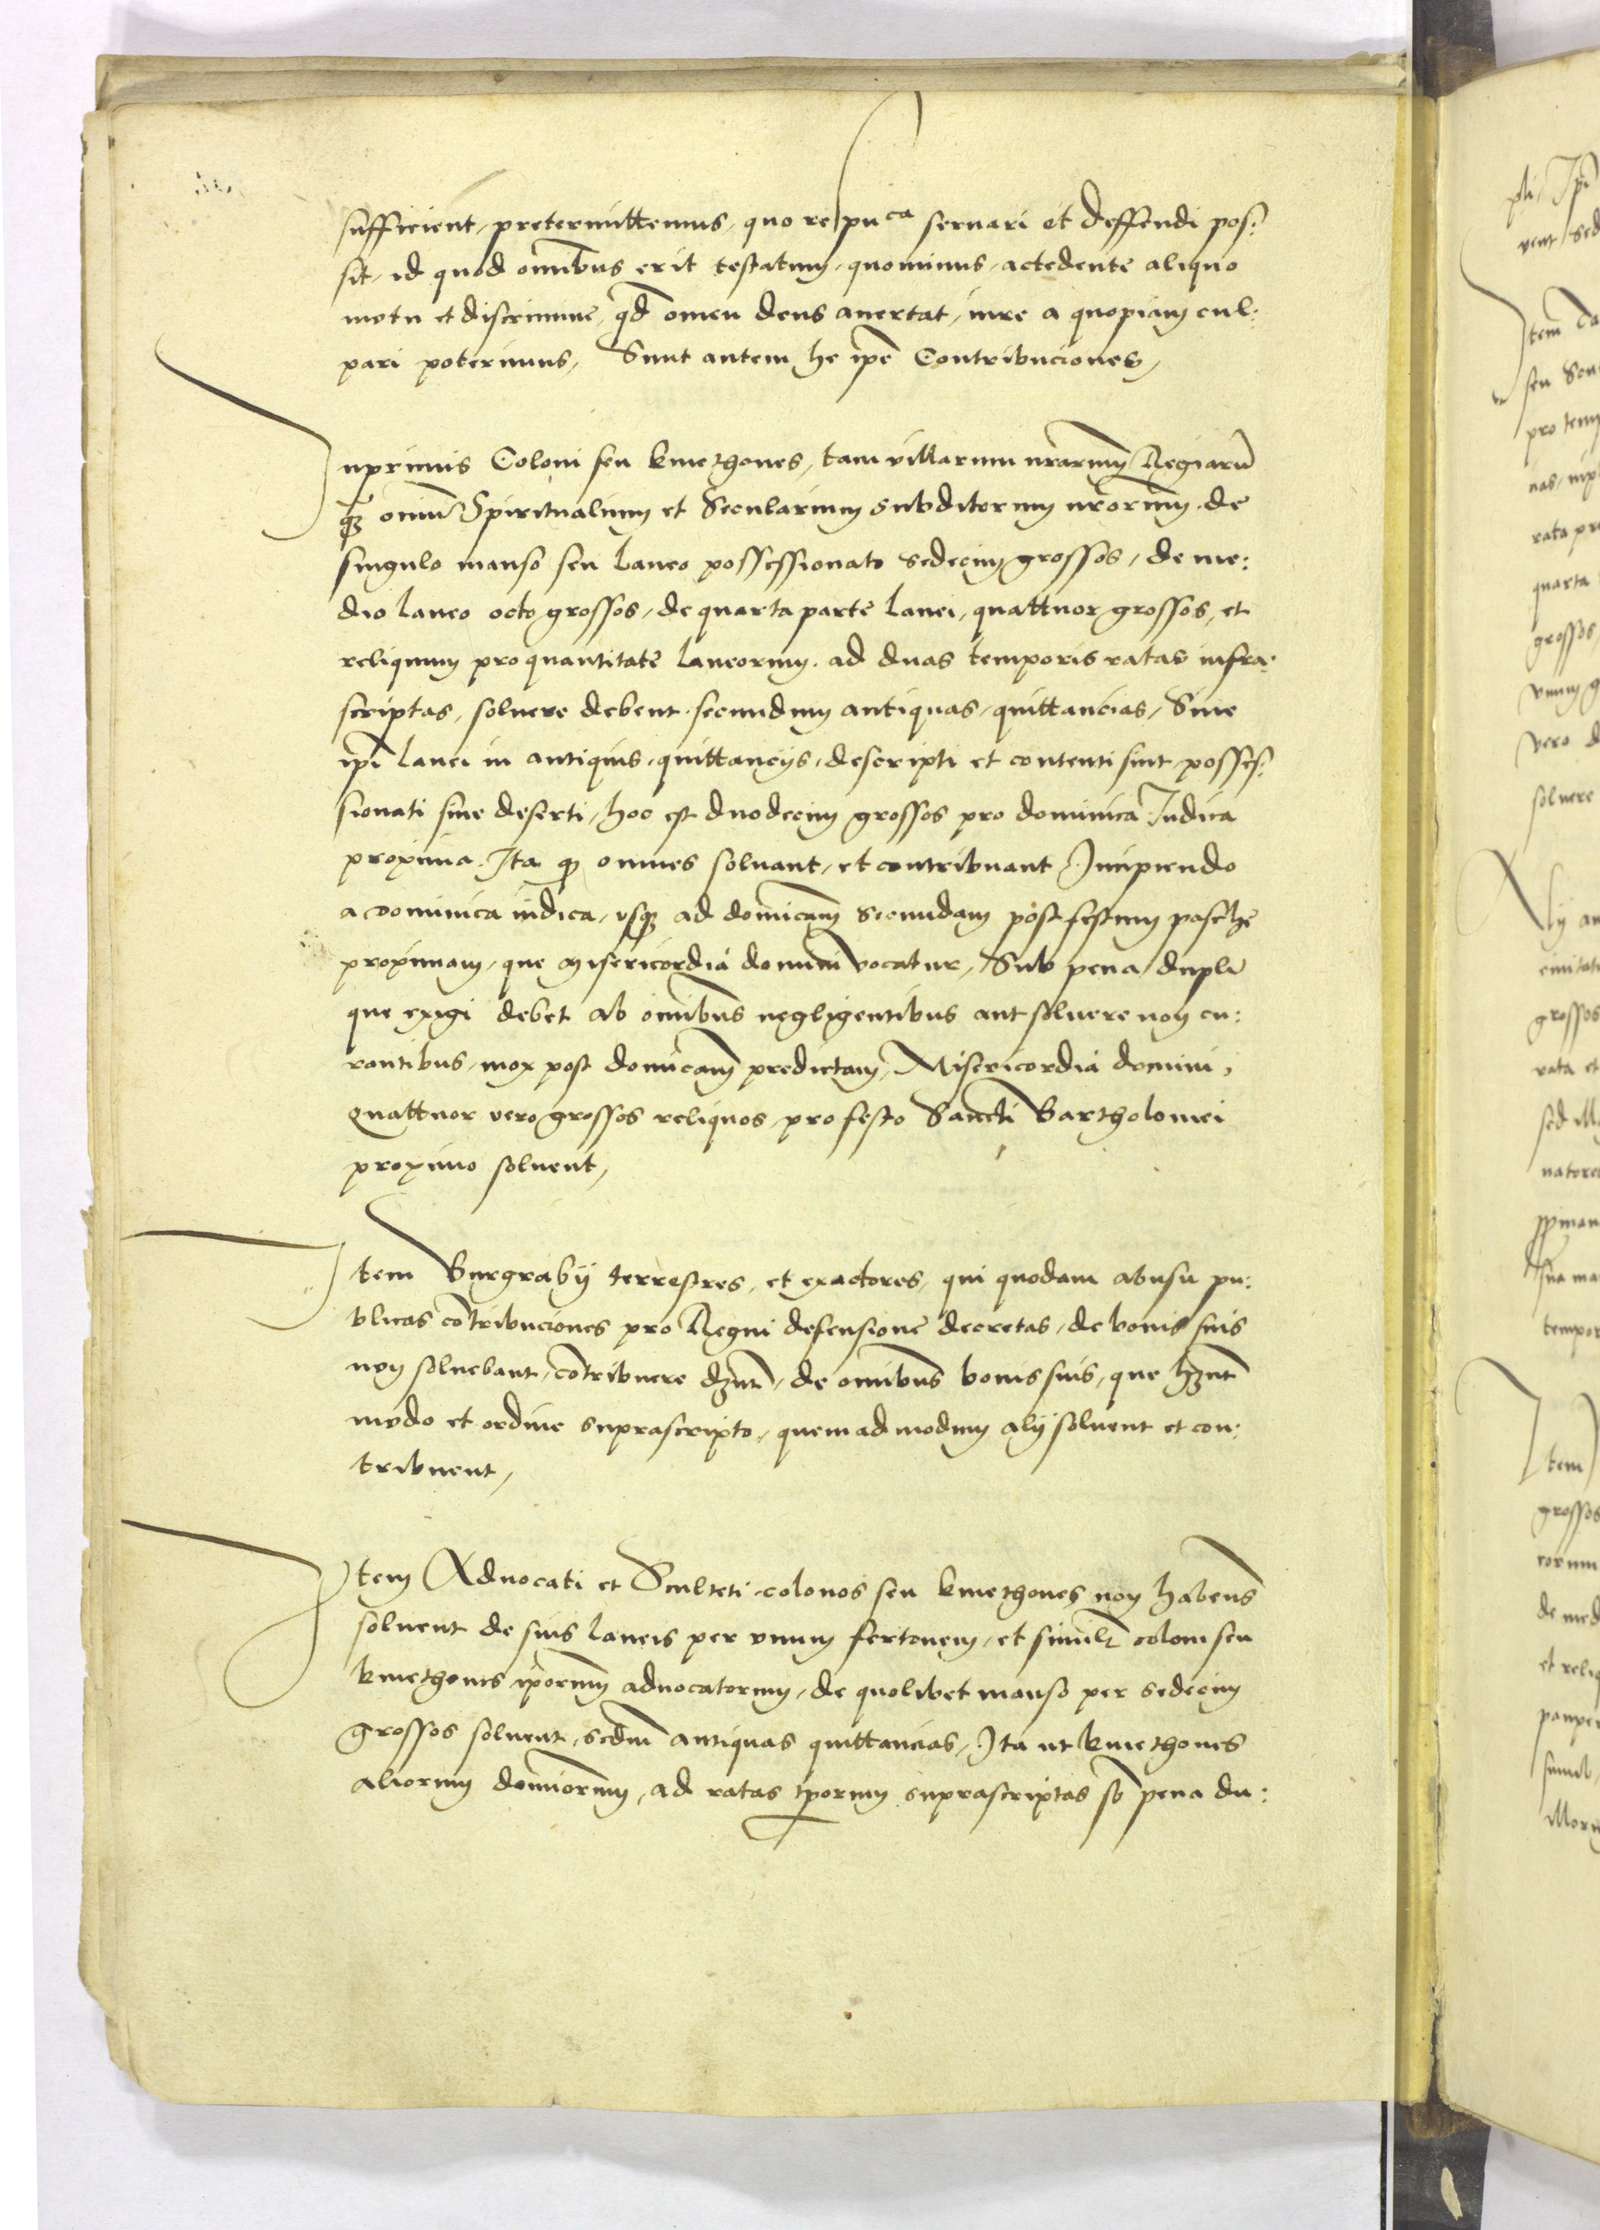 sufficient, pretermittemus, quo respuca servari et deffendi pos:
sit, id quod omnibus erit testatum, quominus, accedente aliquo
motu et discrimine, qd omen deus avertat, iure a quopiam cul:
pari poterimus, Sunt autem he ipe Contribuciones,
Inprimis Coloni seu kmethones, tam villarum nrarum Regiaru
q omniu Spiritualium et Secularium subditorum nrorum, de
singulo manso seu laneo possessionato sedecim grossos, de me:
dio laneo octo grossos, de quarta parte lanei, quattuor grossos, et
reliquum pro quantitate laneorum, ad duas temporis ratas infra:
scriptas, solvere debent, secundum antiquas, quittancias, Sive
ipi lanei in antiquis, quittancijs, descripti et contenti sint, posses:
sionati sive deserti, hoc est duodecim grossos pro dominica Judica
proxima. Ita q omnes solvant, et contribuant Incipiendo
a dominica iudica, usq ad domicam secundam post festum pasche
proximam, que Misericordia domini vocatur, Sub pena dupli
que exigi debet ab omnibus negligentibus aut solvere non cu:
rantibus, mox post domicam predictam, Misericordia domini,
Quattuor vero grossos reliquos, pro festo Sancti Bartholomei
proximo solvent,
Item Burgrabij terrestres, et exactores, qui quodam abusu pu:
blicas contribuciones pro Regni defensione decretas, de bonis suis
non solvebant, contribuere dznt, de omnibus bonis suis, que hznt
modo et ordine suprascripto, quemadmodum alij solvent et con:
tribuent,
Item Advocati et Sculteti colonos seu kmethones non habens
solvent de suis laneis per unum fertonem, et similr coloni seu
kmethones iporum advocatorum, de quolibet manso per sedecim
grossos solvent, scdm antiquas quittancias, Ita ut kmethones
aliorum dominorum, ad ratas tporum suprascriptas sb pena du: